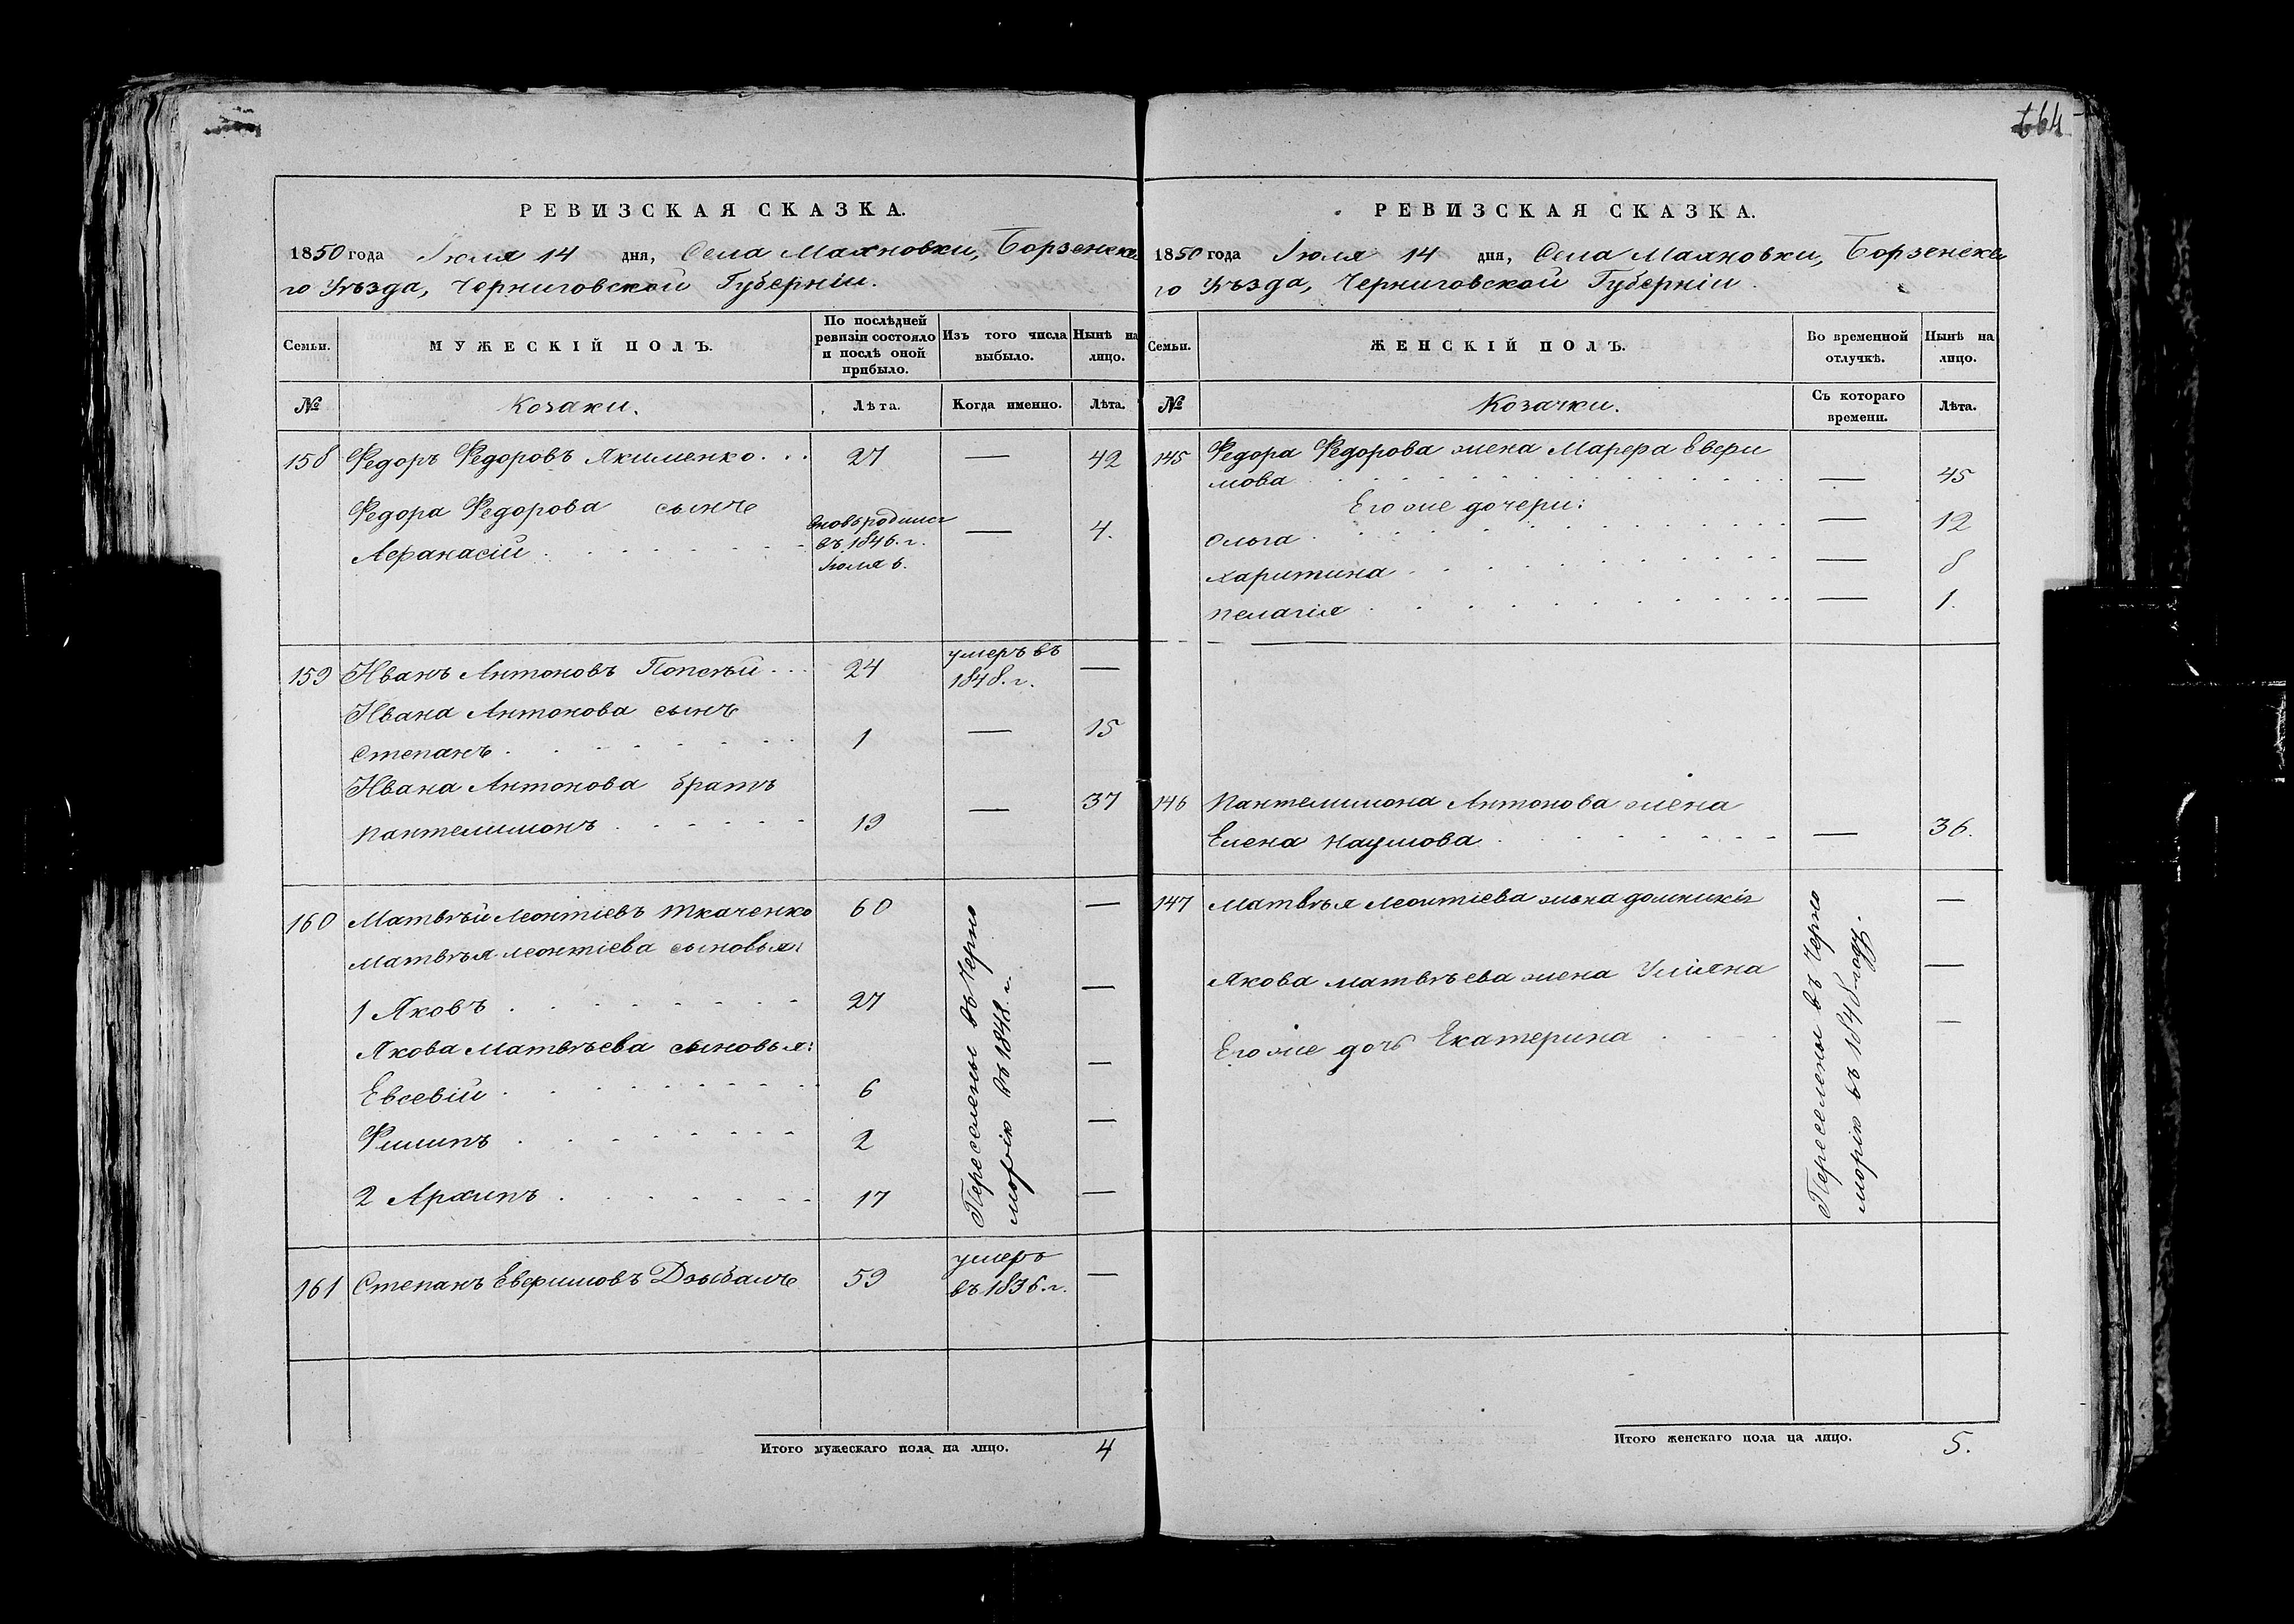 664
РЕВИЗСКАЯ СКАЗКА.
1850 года Іюля 14 дня, Села Маяновки, Борзенска
го Уѣзда, Черниговской Губерніи.
Семьи.
МУЖЕСКІЙ ПОЛЪ.
По послѣдней ревизіи состояло и послѣ оной прибыло.
Изъ того числа выбыло.
Нынѣ на лицо.
№
Козаки.
Лѣта.
Когда именно.
Лѣта.
158 Федоръ Федоровъ Якименко . . . 27 — 42
Федора Федорова сынъ
Афанасій вновь родился въ 1846. г. Іюля 6. — 4.
159 Иванъ Антоновъ 24 умеръ въ 1848. г. —
Ивана Антонова сынъ
Степанъ 1 — 15
Ивана Антонова братъ
Пантелимонъ 19 — 37
160 Матвѣй Леонтіевъ Ткаченко 60 —
Матвѣя Леонтіева сыновья:
1 Яковъ 27 —
Якова Матвѣева сыновья:
Евсевій 6 —
Филипъ 2 —
2 Архипъ 17 —
Переселены въ Черно
морію въ 1848. г.
161 Степанъ Евфимовъ 59 умеръ въ 1836. г. —
Итого мужескаго пола на лицо. 4
РЕВИЗСКАЯ СКАЗКА.
1850 года Іюля 14 дня, Села Маяновки, Борзенска
го Уѣзда, Черниговской Губерніи.
Семьи.
ЖЕНСКІЙ ПОЛЪ.
Во временной отлучкѣ.
Нынѣ на лицо.
№
Козачки.
Съ котораго времени.
Лѣта.
145 Федора Федорова жена Марфа Евфи
мова — 45
Его же дочери:
Ольга — 12
Харитина — 8
Пелагія — 1.
146 Пантелимона Антонова жена
Елена Наумова — 36.
147 Матвѣя Леонтіева жена Домникія —
Якова Матвѣева жена Уліяна —
Его же дочь Екатерина —
Переселены въ Черно
морію въ 1848 году.
Итого женскаго пола на лицо. 5.